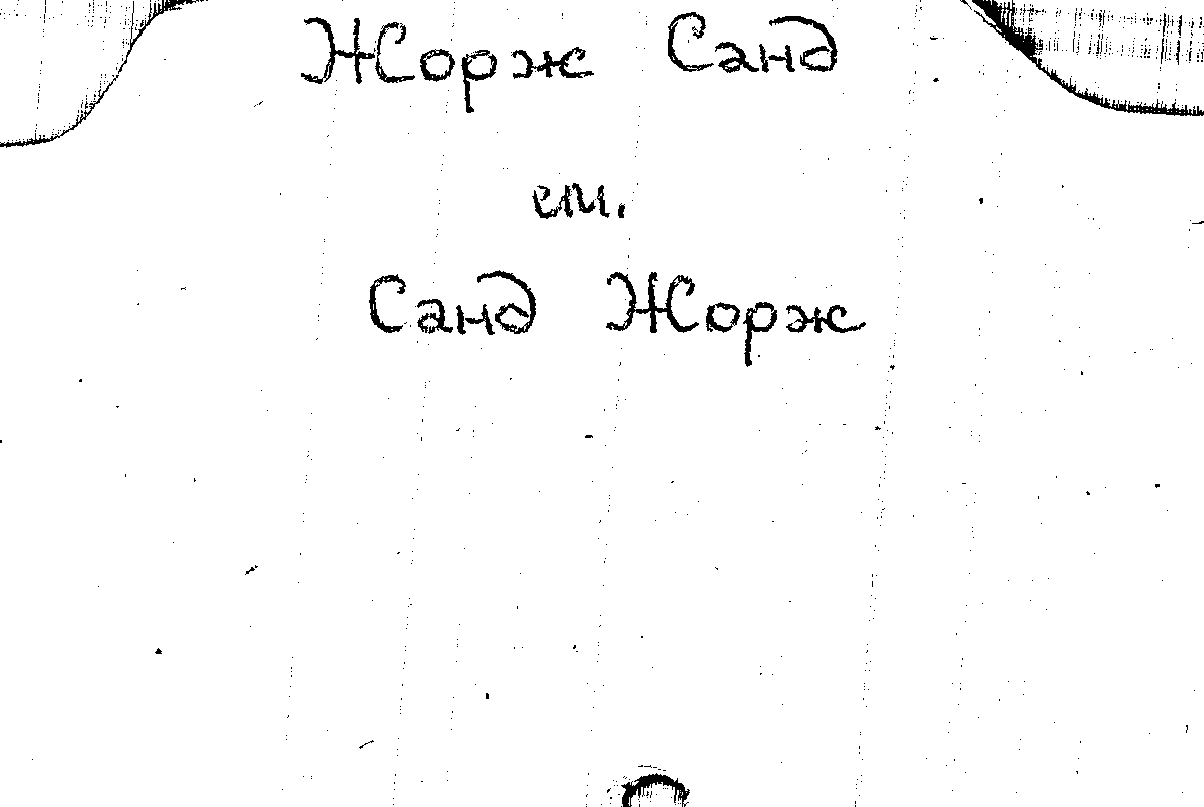 Жорж Санд
см.
Санд Жорж